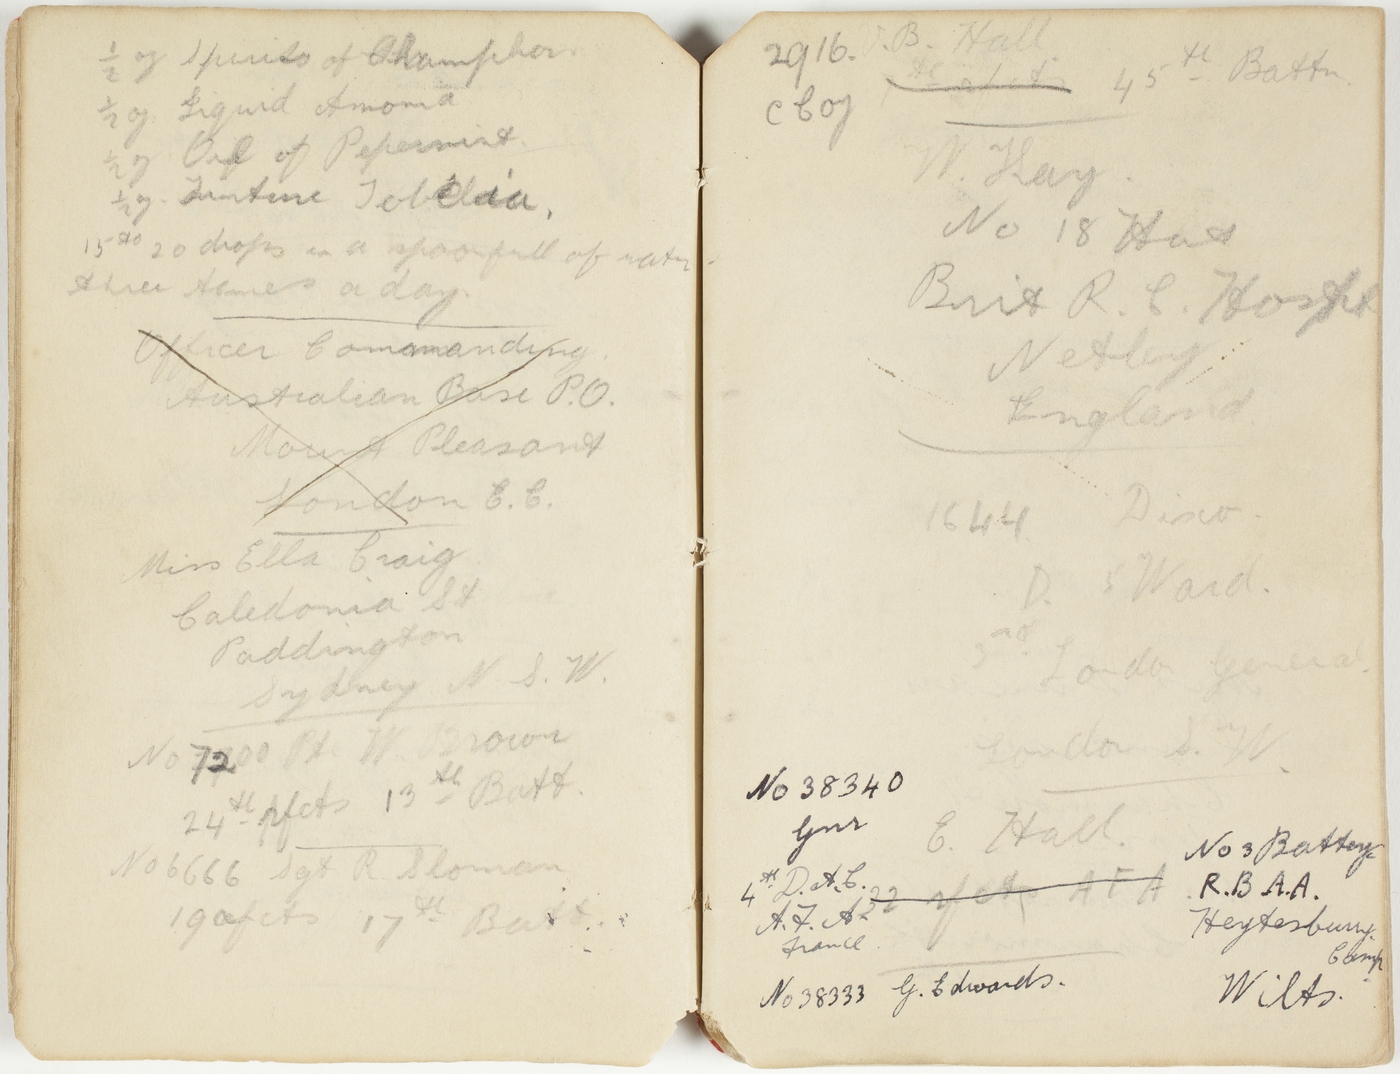 ½ oz Spirits of Champhor
½ oz Liquid Amonia
½ oz Oil of Pepermint.
½ oz. Tinture Lobelia,
15 to 20 drops in a spoonfull of water
three times a day.
Officer Commanding.
Australian Base P.O.
Mount Pleasant
London E.C.
Miss Ella Craig
Caledonia St
Paddington
Sydney N.S.W.
No 7200 Pte W. Brown
24th rfcts 13th Batt.
No 6666 Sgt R Sloman
19 rfcts 17th Batt.
2916. J.B. Hall
C Coy 45th Battn.
W. Hay.
No 18 Hut
Brit R.C. Hospt
Netley
England
1644 Dixo.
D. 5 Ward.
3rd London General
London S.W.
No 38340
Gnr E. Hall. No 3 Battery
4th D.A.C. 22 rfcts A F A R.B.A.A.
A.F.A. Heytesbury
France Camp
No 38333 G. Edwards. Wilts.